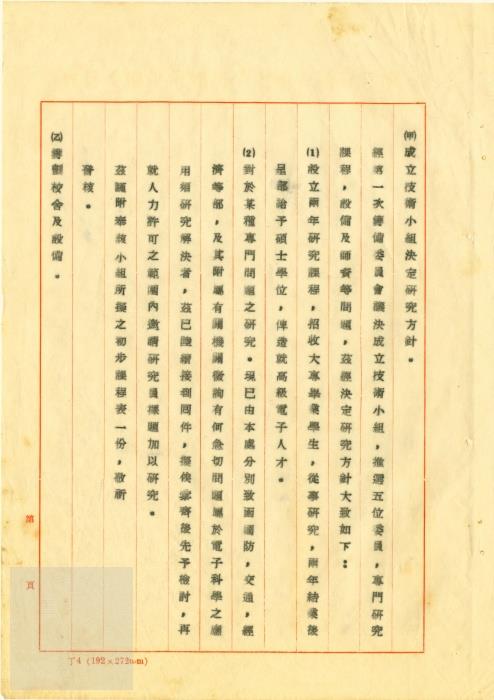 ㈙成立技術小組決定研究方針。
經第一次籌備委員會議決成立技術小組，推選五位委員，專門研究
課程，設備及師資等問題，茲經決定研究方針大致如下：
(1)設立兩年研究課程，招收大專畢業學生，從事研究，兩年結業後
呈部給予碩士學位，俾造就高級電子人才。
(2)對於某種專門問題之研究。現已由本處分別致函國防，交通，經
濟等部，及其附屬有關機關徵詢有何急切問題屬於電子科學之應
用須研究解決者，茲已陸續接到回件，擬俟彙齊後先予檢討，再
就人力許可之範圍內邀請研究員擇題加以研究。
茲隨附奉該小組所擬之初步課程表一份，敬祈
詧核。
㈚籌劃校舍及設備。
第 頁
丁4 (192×272m/m)